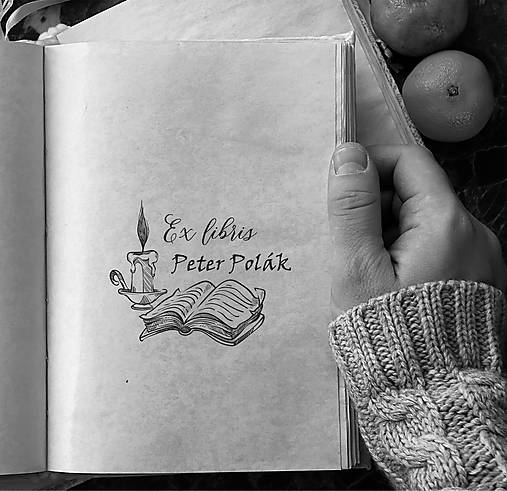 Ex libris
Peter Polák